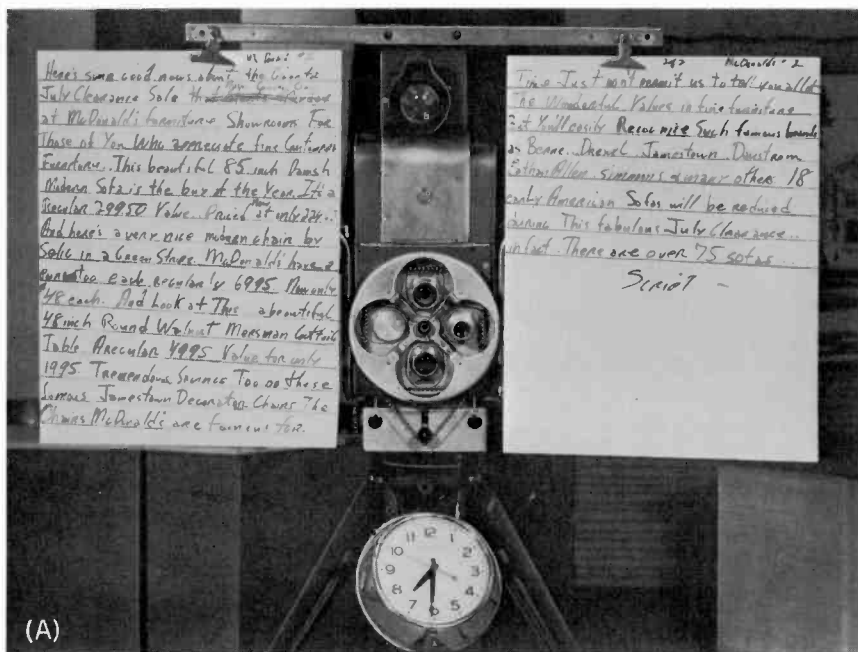 Here's some good news about the Giant
July Clearance Sale that
at McDonald's furniture Showrooms For
Those of You Who appreciate fine
Furniture. This beautiful 85 inch Danish
Modern Sofa is the buy of the Year. It's a
Regular 29950 Value. Priced Now at only
And here's a very nice modern chair by
Selig in a Green Stripe. McDonald's have a
too each Regularly 6995 Now only
48 each. And Look at This a beautiful
48 inch Round Walnut Mersman Cocktail
Table A regular 4995 Value for only
1995 Tremendous Savings Too on these
famous Jamestown Decorator Chairs The
Chairs McDonald's are famous for.
2 of 2 McDonald's # 2
Time Just won't permit us to tell you all of
The Wonderful Values in fine furniture
But You'll easily Recognize Such famous brands
as Berne. Drexel Jamestown Daystrom
Ethan Allen. Simmons & many other 18
early American Sofas will be reduced
during This fabulous July Clearance..
in fact. There are over 75 sofas...
SCRIPT -
12
1
2
3
4
5
6
7
8
9
10
11
(A)